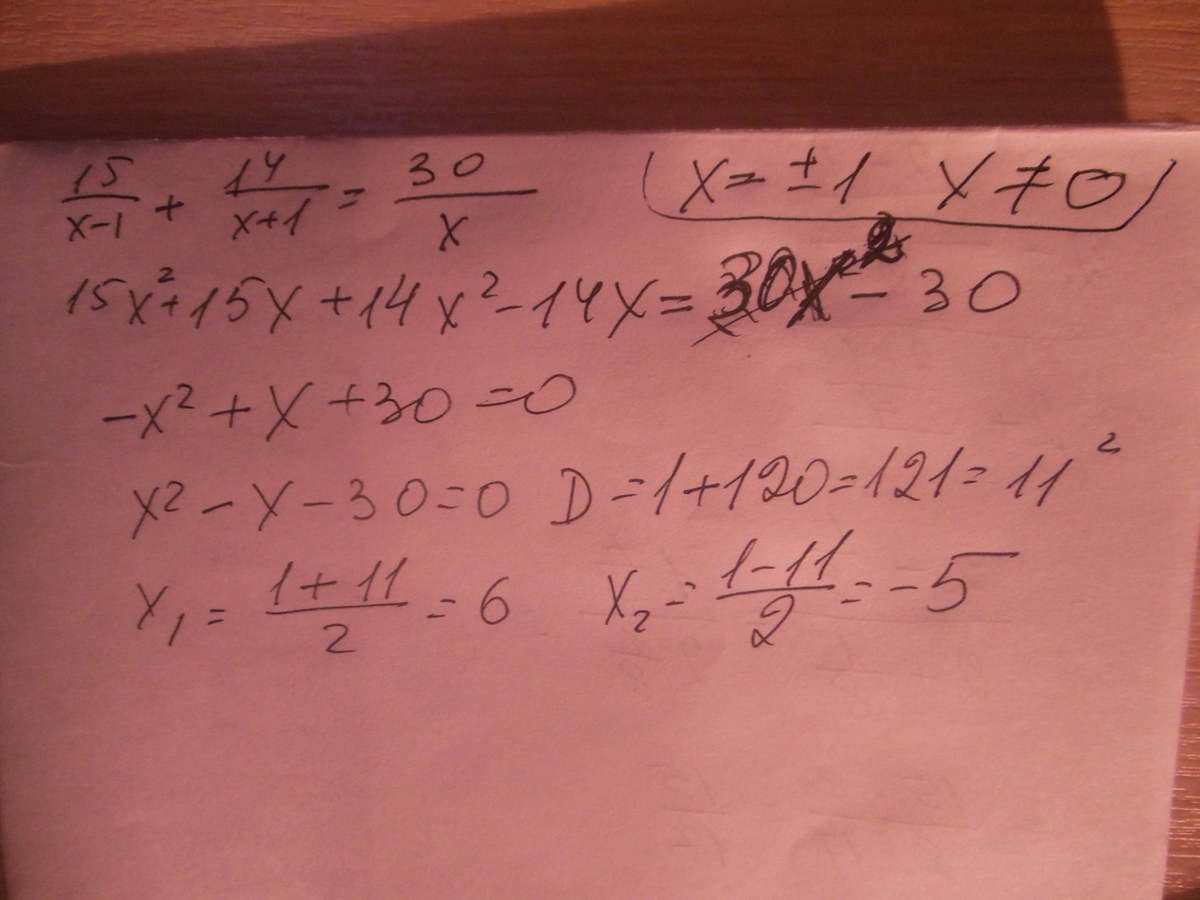 15/(x-1) + 14/(x+1) = 30/x (x = ±1 x ≠ 0)
15x² + 15x + 14x² - 14x = 30x² - 30
-x² + x + 30 = 0
x² - x - 30 = 0 D = 1 + 120 = 121 = 11²
x₁ = (1 + 11)/2 = 6 x₂ = (1 - 11)/2 = -5